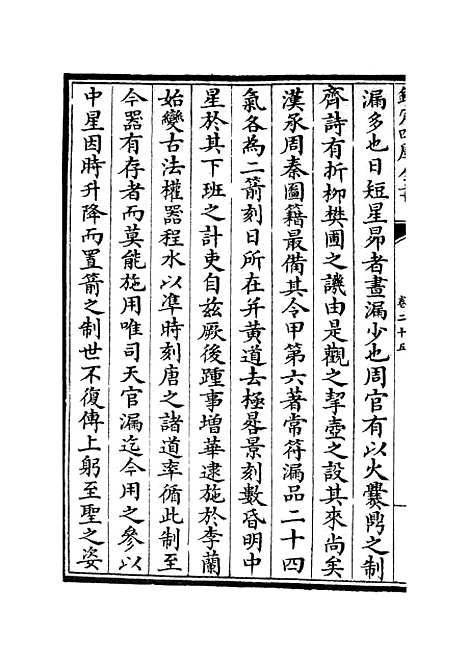 卷二十五
漏多也日短星昴者晝漏少也周官有以火爨鼎之制
齊詩有折柳樊圃之譏由是觀之挈壺之設其來尚矣
漢承周秦圖籍最備其令甲第六著常符漏品二十四
氣各為二箭刻日所在并黄道去極晷景刻數昏明中
星於其下班之計吏自兹厥後踵事增華逮施於李蘭
始變古法權器程水以準時刻唐之諸道率循此制至
今器有存者而莫能施用唯司天官漏迄今用之參以
中星因時升降而置箭之制世不復傳上躬至聖之姿